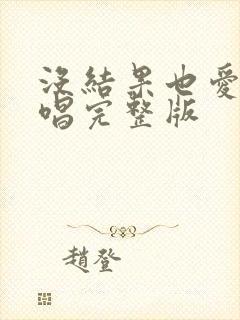 沒結果也愛
唱完整版
趙登